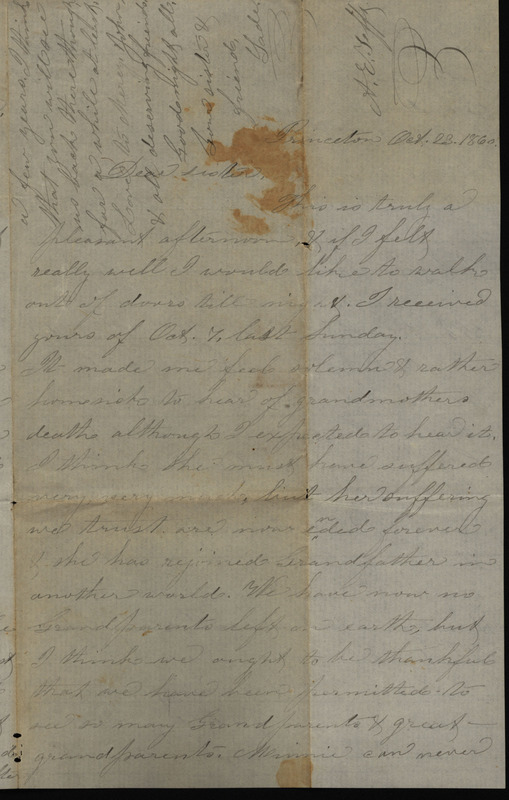 Princeton Oct. 23. 1860.
Dear sister,
This is truly a
pleasant afternoon, & if I felt
really well I would like to walk
out of doors till night. I received
yours of Oct. 7, last Sunday.
It made me feel solemn & rather
homesick to hear of grandmothers
death although I expected to hear it.
I think she must have suffered
very, very much, but her suffering
we trust are now ended forever
& she has rejoined Grandfather in
another world. We have now no
Grandparents left on earth, but
I think we ought to be thankful
that we have been permitted to
see so many Grandparents & great-
grandparents. Minnie can never
a few years. I think
that you will see
us back there though
for a while at least.
Love to John
& all deserving friends
Good night all.
Your sister &
friend,
A. E. Neff